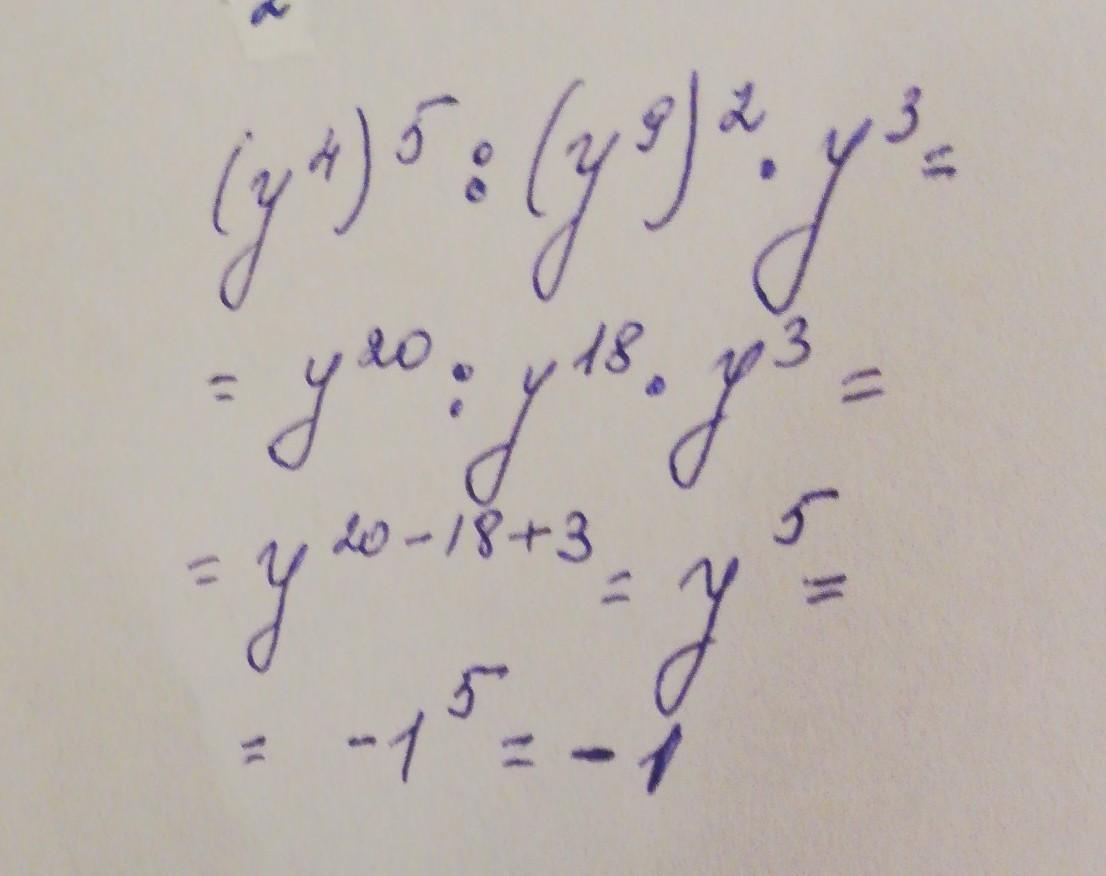 2
(y⁴)⁵ : (y⁹)² · y³ =
= y²⁰ : y¹⁸ · y³ =
= y²⁰⁻¹⁸⁺³ = y⁵ =
= -1⁵ = -1